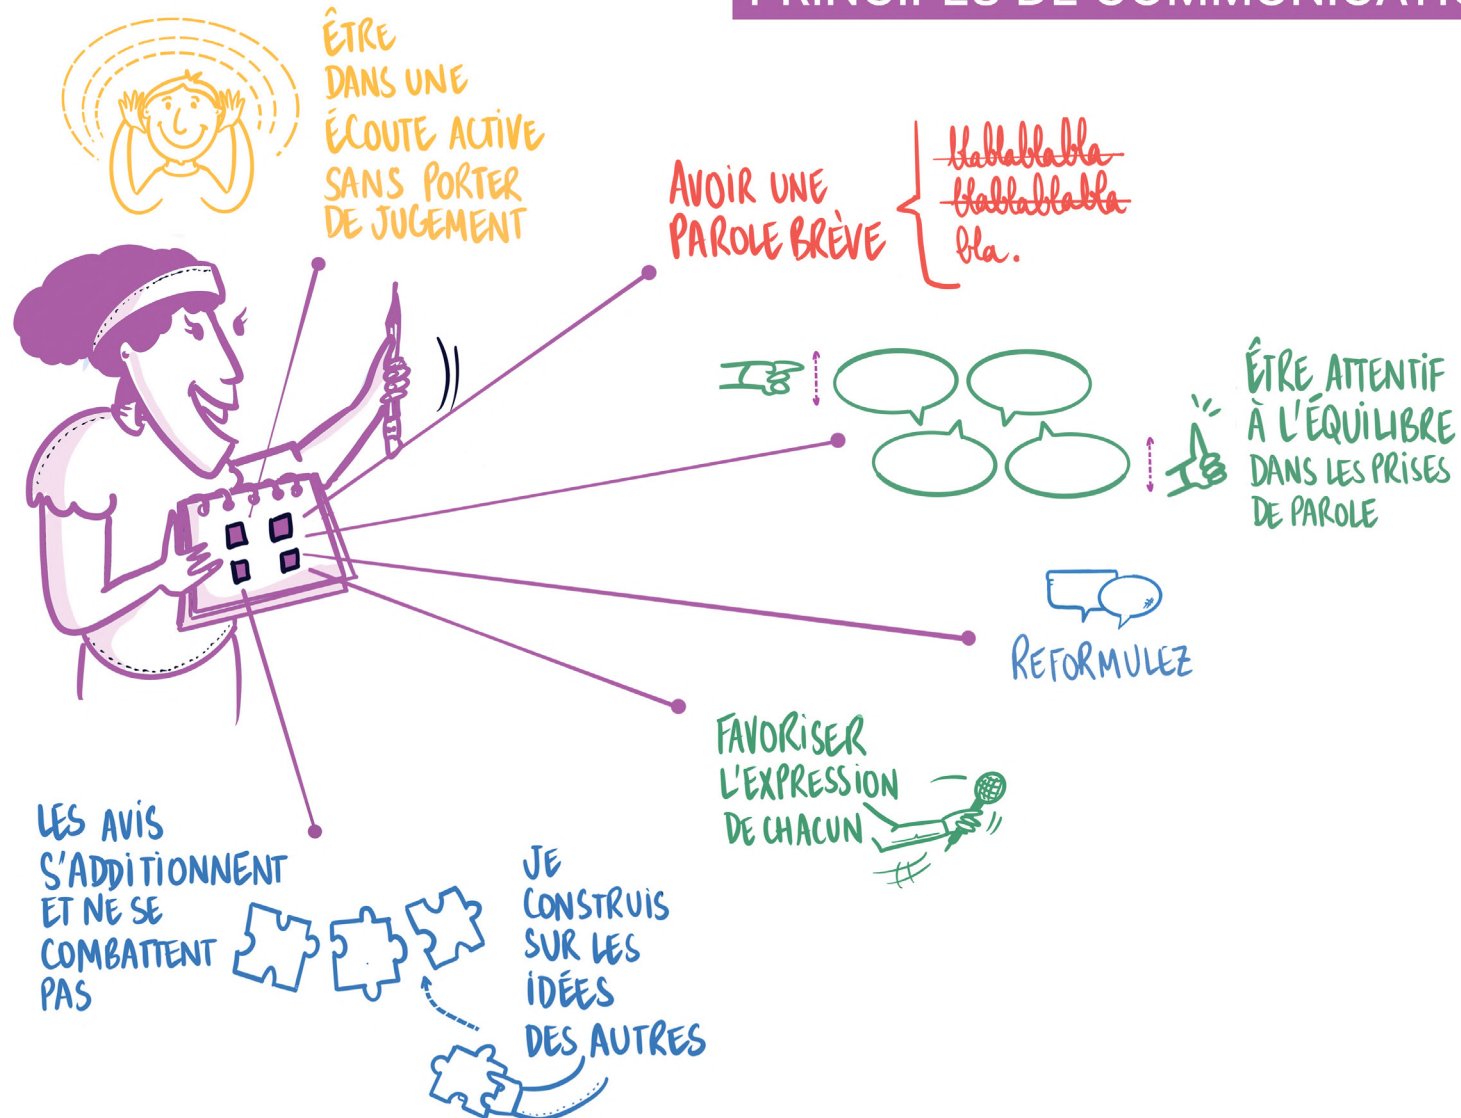 PRINCIPES DE COMMUNICATIO
ÊTRE
DANS UNE
ÉCOUTE ACTIVE
SANS PORTER
DE JUGEMENT
AVOIR UNE
PAROLE BRÈVE
blablablabla
blablablabla
bla.
ÊTRE ATTENTIF
À L'ÉQUILIBRE
DANS LES PRISES
DE PAROLE
REFORMULEZ
FAVORISER
L'EXPRESSION
DE CHACUN
LES AVIS
S'ADDITIONNENT
ET NE SE
COMBATTENT
PAS
JE
CONSTRUIS
SUR LES
IDÉES
DES AUTRES